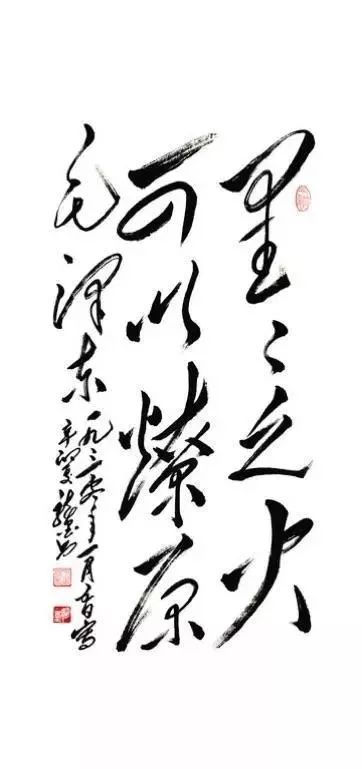 星〻之火
可以燎原
毛泽东
一九三零年一月五日写
辛卯夏